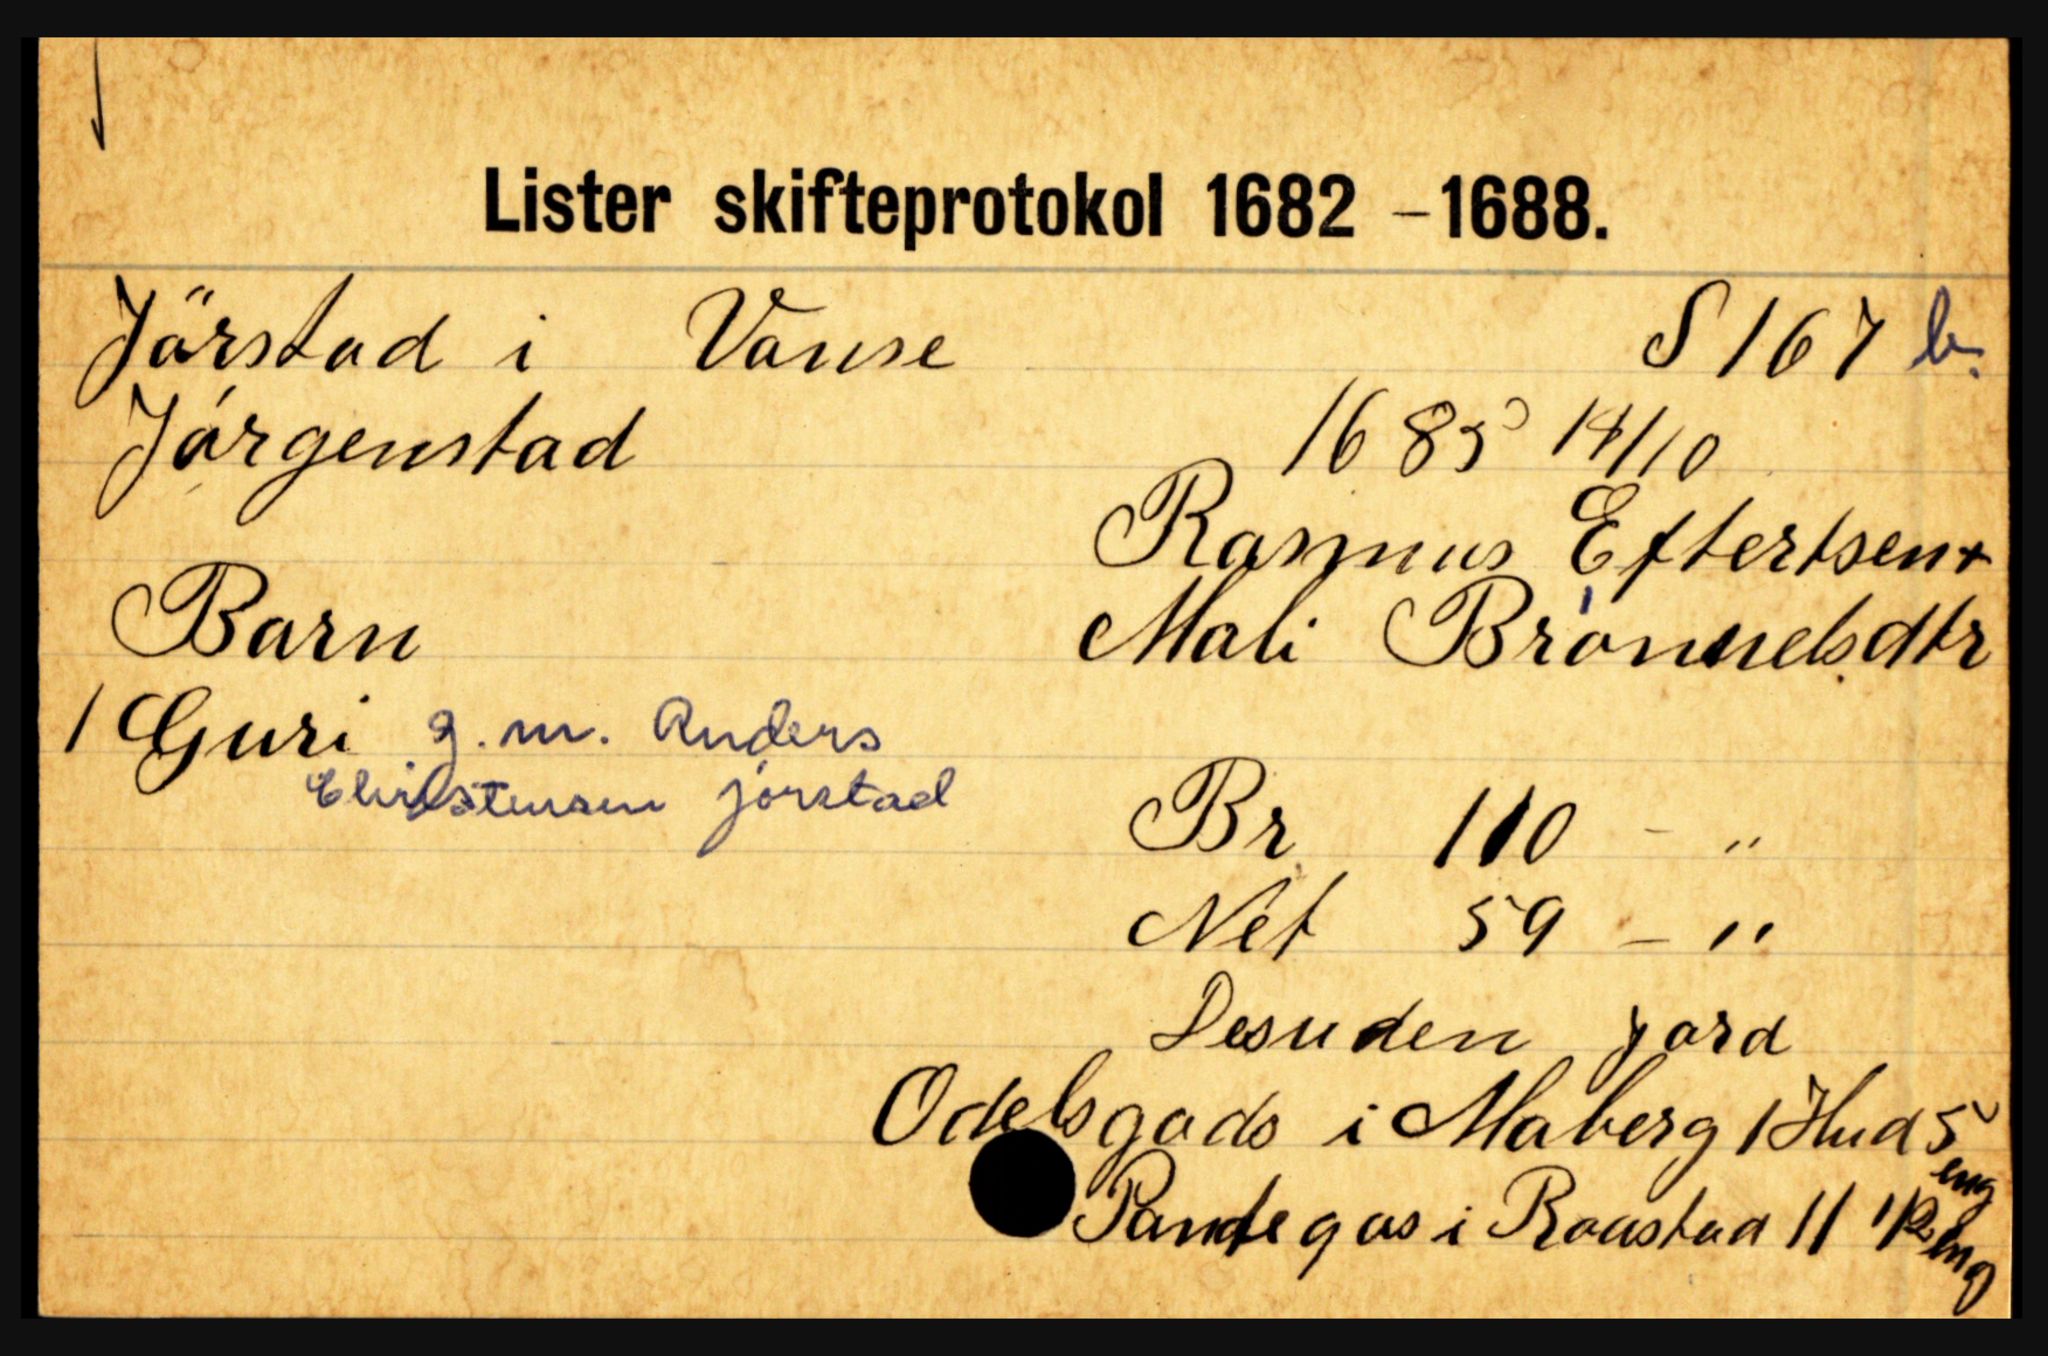 Lister skifteprotokol 1682 - 1688.
Jörstad i Vanse S 167 b.
Jórgenstad 1685 14/10
Rasmus Eftertsen +
Barn Mali Brónnelsdtr
1 Guri g.m. Anders
Christensen Jórstad
Br 110 - "
Net 59 - "
Desuden jord
Odelsgods i Maberg 1 Hud 5
eng
Pantegos i Raastad 11 1/2
eng